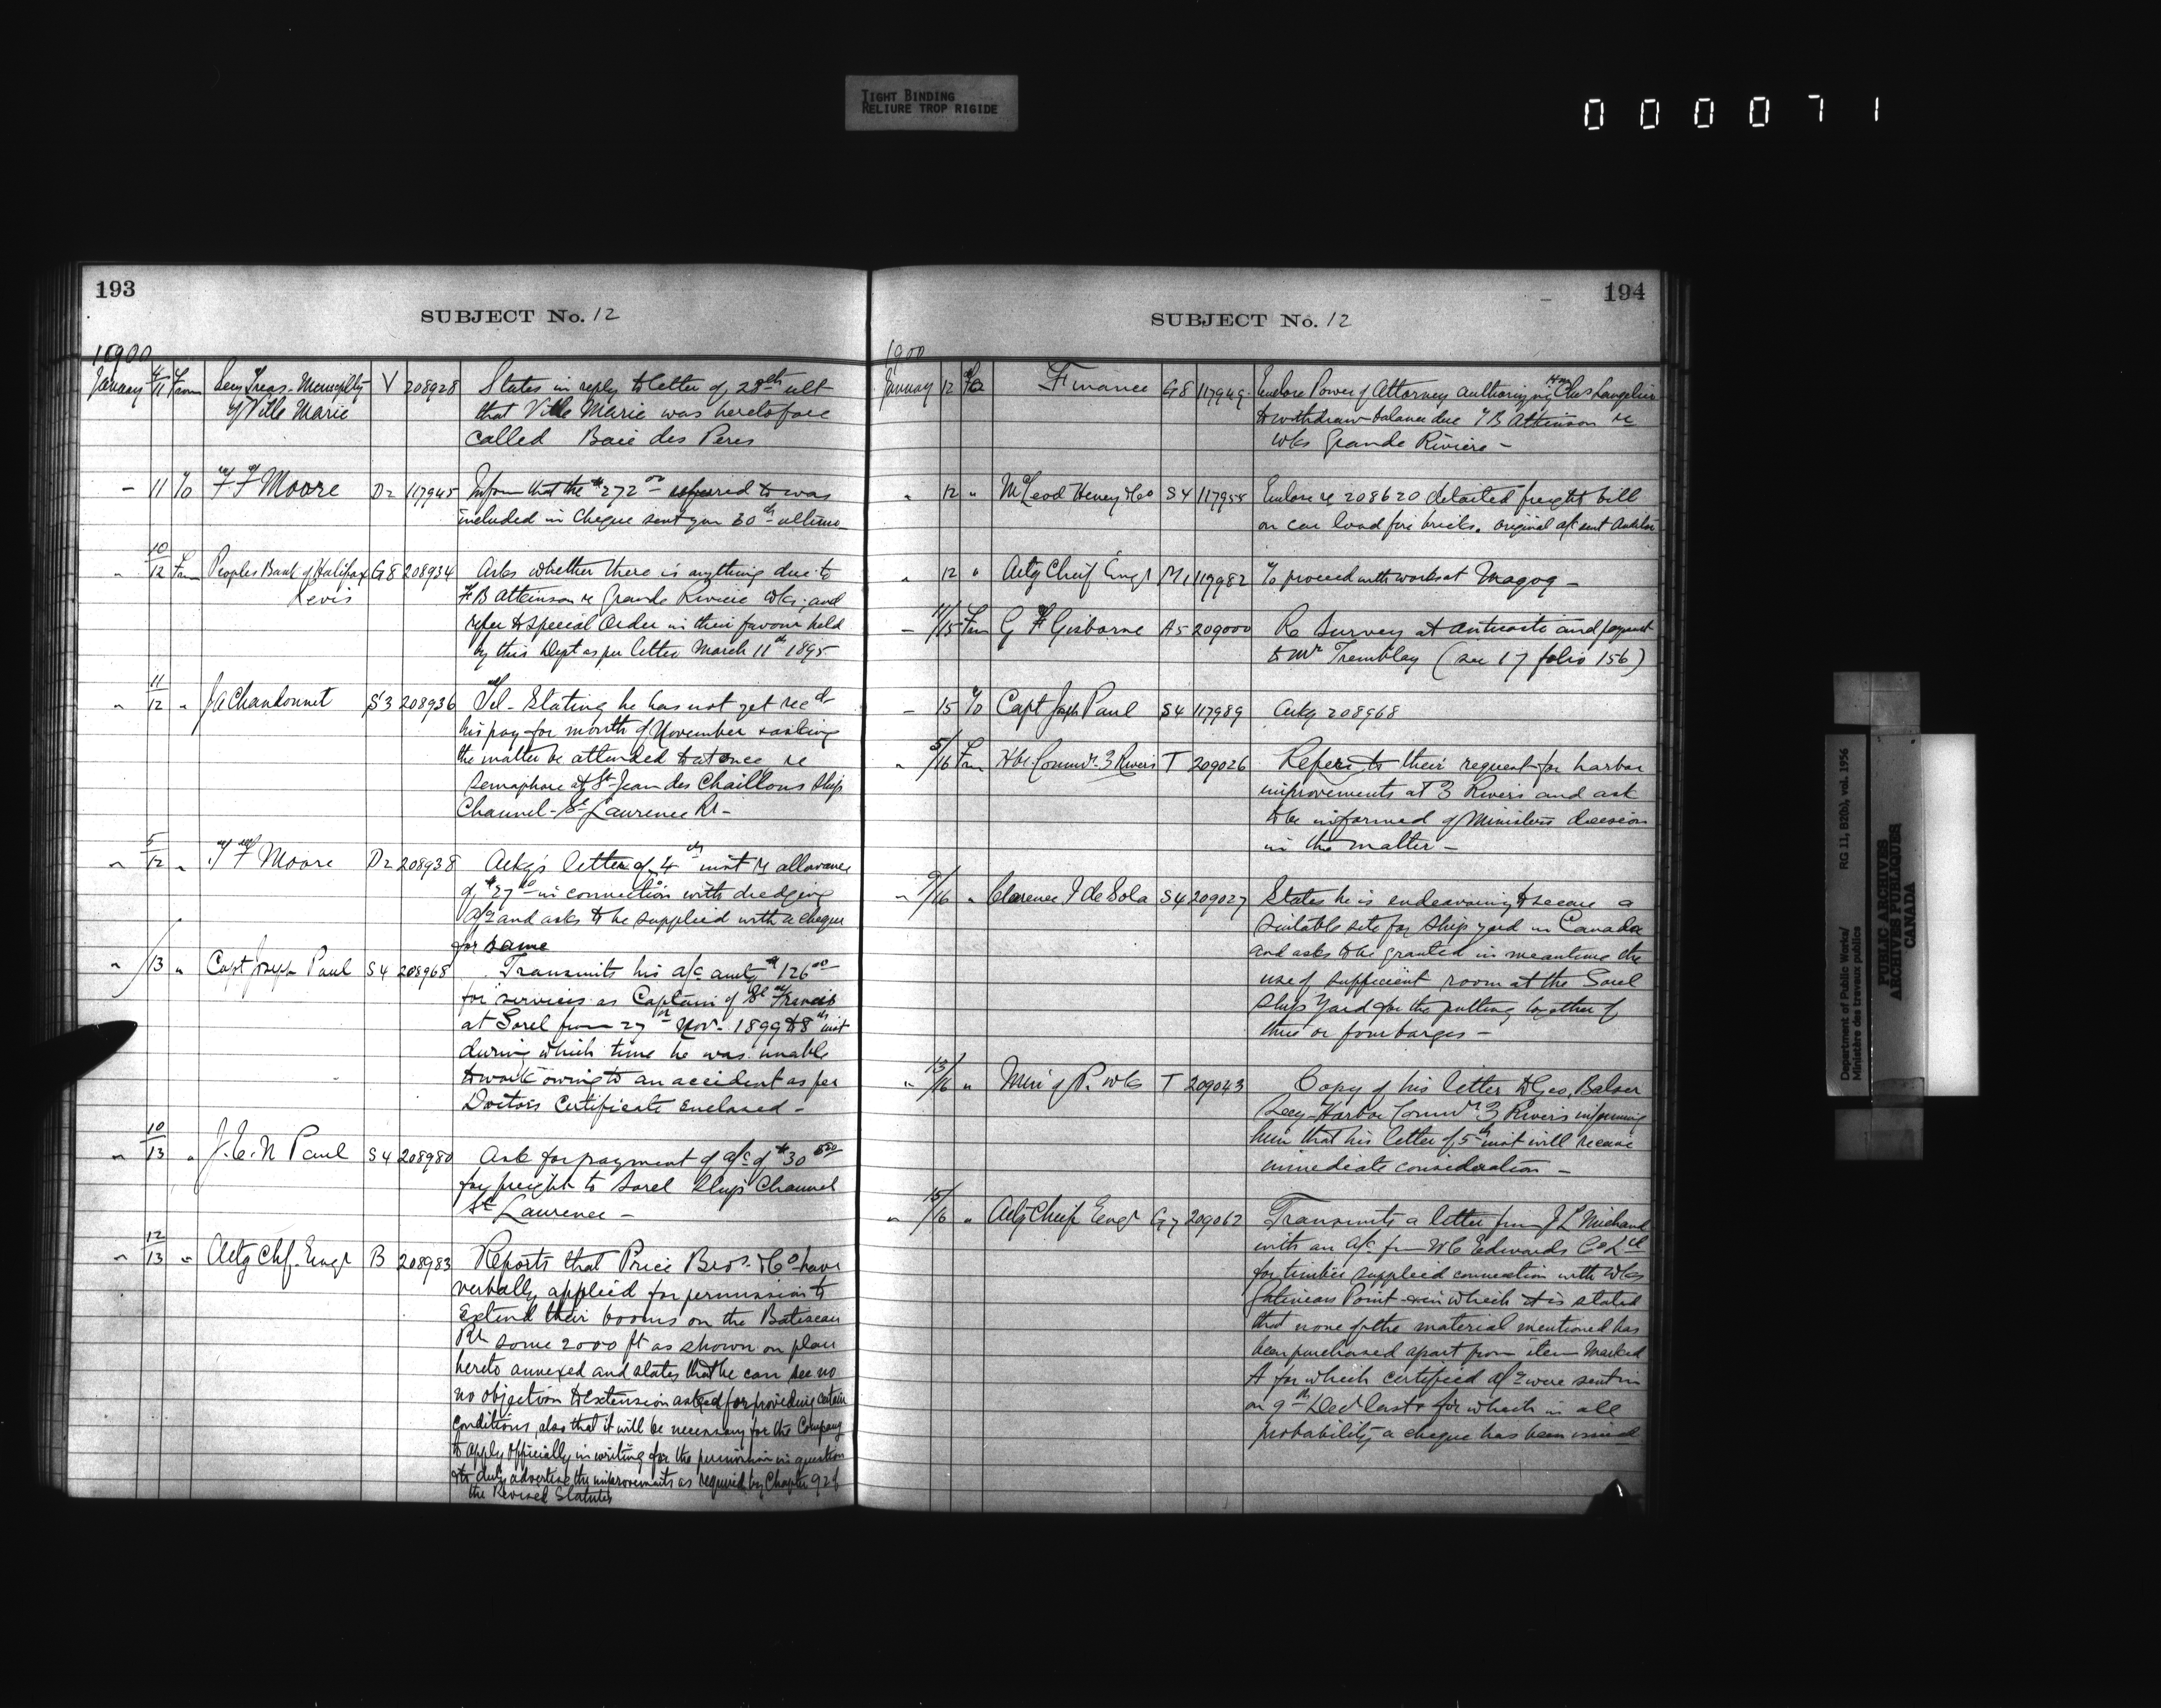 TIGHT BINDING
RELIURE TROP RIGIDE
000071
193
SUBJECT No. 12
1900
January 4/11 From Secy Treas. Municplty V 208928 States in reply to letter of 28th ult
of Ville Marie that Ville Marie was heretofore
called Baie des Peres
- 11 To F F Moore D2 117945 Inform that the $272 00 referred to was
included in Cheque sent you 30th ultimo
" 10/12 From Peoples Bank of Halifax G8 208934 Asks whether there is anything due to
Levis F B Atkinson re Grande Riviere Wks, and
refer to special Order in their favour held
by this Dept as per letter March 11th 1895
" 11/12 " J A Chandonnet S3 208936 Tel - Stating he has not yet recd
his pay for month of November & asking
the matter be attended to at once re
Semaphore at St Jean des Chaillons Ship
Channel - St Laurence Rr -
" 5/12 " F Moore D2 208938 Ackgs letter of 4th inst re allowance
of $27 in connection with dredging
a/c and asks to be supplied with a cheque
for same
" /13 " Capt Joseph Paul S4 208968 Transmits his a/c amtg $126 00
for services as Captain of St Francis
at Sorel from 27th Nov. 1899 to 8th inst
during which time he was unable
to work owing to an accident as per
Doctors Certificate Enclosed -
" 10/13 " J. E. N Paul S4 208980 Ask for payment of a/c of $30
for freight to Sorel Ships Channel
St Laurence -
" 12/13 " Actg Chf. Engr B 208983 Reports that Price Bros. & Co have
verbally applied for permission to
Extend their booms on the Batiscan
Rr some 2000 ft as shown on plan
hereto annexed and states that he can see no
no objection to extension asked for providing certain
conditions, also that it will be necessary for the Company
to apply officially in writing for the permission in question
& to duly advertise the improvements as required by Chapter 92 of
the Revised Statutes
194
SUBJECT No. 12
1900
January 12 To Finance G8 117949 Enclose Power of Attorney authorizing Hon Chas Langelier
to withdraw balance due F B Atkinson re
wks Grande Riviere -
" 12 " McLeod Henry & Co S4 117955 Enclose re 208620 detailed freight bill
on car load fire bricks. original a/c sent Auditor
" 12 " Actg Chief Engr M1 117982 To proceed with works at Magog -
- 11/15 From G F Gisborne A5 209000 Re Survey at Anticosti and payment
to Mr Tremblay (see 17 folio 156)
- 15 To Capt Josph Paul S4 117989 Ackg 208968
" 5/16 From Hbr Commrs. 3 Rivers T 209026 Refers to their request for harbor
improvements at 3 Rivers and ask
to be informed of Ministers decision
in the matter -
" 9/16 " Clarence I de Sola S4 209027 States he is endeavoring to secure a
suitable site for ship yard in Canada
and asks to be granted in meantime the
use of sufficient room at the Sorel
Ships Yard for the putting together of
three or four barges -
" 13/16 " Min of P. Wks T 209043 Copy of his letter to Geo. Balcer
Secy - Harbor Commrs. 3 Rivers informing
him that his letter of 5th inst will receive
immediate consideration -
" 15/16 " Actg Chief Engr G7 209062 Transmits a letter from J L Michaud
with an a/c from W C Edwards Co Ltd
for timber supplied connection with wks
Gatineau Point & in which it is stated
that none of the material mentioned has
been purchased apart from item Marked
A for which certified a/cs were sent in
on 9th Decr last & for which in all
probability a cheque has been issued
Department of Public Works/
Ministère des travaux publics
RG 11, B2(b), vol. 1956
PUBLIC ARCHIVES
ARCHIVES PUBLIQUES
CANADA